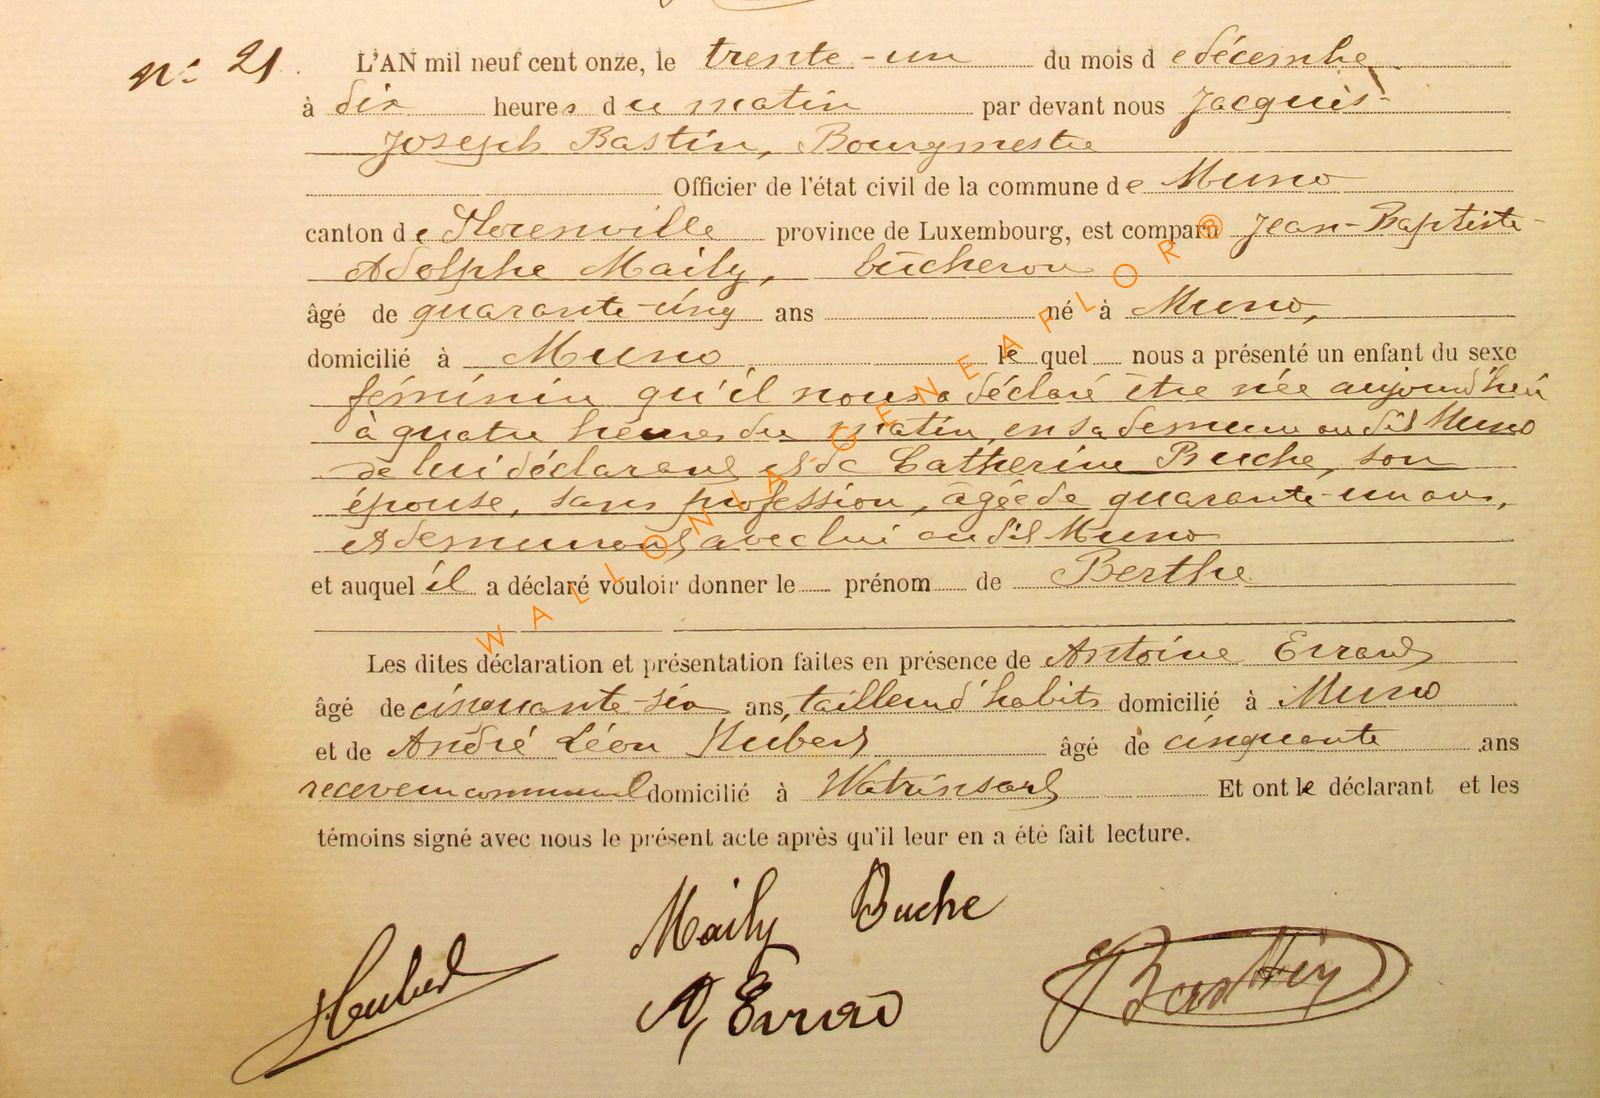 n° 21.
L'AN mil neuf cent onze, le trente-un du mois de décembre
à dix heures du matin par devant nous Jacques-
Joseph Bastin, Bourgmestre
Officier de l'état civil de la commune de Muno
canton de Florenville province de Luxembourg, est comparu Jean-Baptiste-
Adolphe Maily, bûcheron
âgé de quarante-cinq ans né à Muno,
domicilié à Muno le quel nous a présenté un enfant du sexe
féminin qu'il nous a déclaré être née aujourd'hui
à quatre heures du matin, en sa demeure au dit Muno
de lui déclarant et de Catherine Buche, son
épouse, sans profession, âgée de quarante-un ans,
et demeurant avec lui au dit Muno
et auquel il a déclaré vouloir donner le prénom de Berthe
Les dites déclaration et présentation faites en présence de Antoine Errard
âgé de cinquante-six ans, tailleur d'habits domicilié à Muno
et de André Léon Hubert âgé de cinquante ans
receveur communal domicilié à Watrinsart Et ont le déclarant et les
témoins signé avec nous le présent acte après qu'il leur en a été fait lecture.
Maily Buche
Hubert A, Errard Bastin
WALLONIA GENEAFLOR®